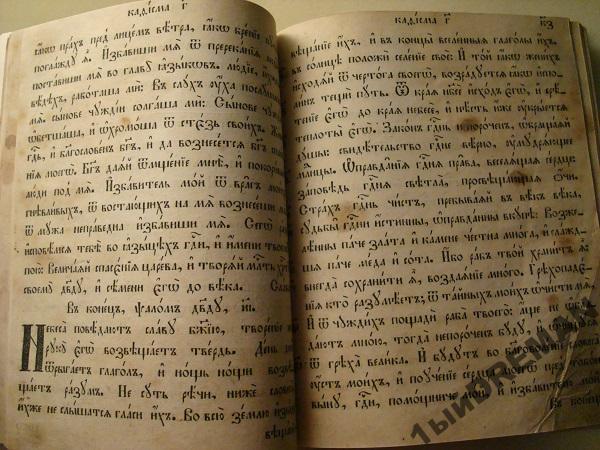 каѳїсма г҃
ꙗ҆́кѡ пра́хъ пред̾ лице́мъ вѣ́тра, ꙗ҆́кѡ бре́нїе
погла́ждꙋ ѧ҆̀. И҆зба́виши мѧ̀ ѿ пререка́нїѧ
поста́виши мѧ̀ во главꙋ̀ ꙗ҆зы́кѡвъ. лю́дїе, и҆́хже
вѣ́дѣхъ, рабо́таша мѝ: Въ слꙋ́хъ ᲂу҆́ха послꙋ́ша
мѧ̀. сы́нове чꙋжді́и солга́ша мѝ: Сы́нове чꙋ
ѡ҆бетша́ша, и҆ ѡ҆хромо́ша ѿ сте́зь свои́хъ.
гдⷭ҇ь, и҆ бл҃гослове́нъ бг҃ъ, и҆ да вознесе́тсѧ бг҃ъ
нїѧ моегѡ̀. Бг҃ъ даѧ́й ѿмще́нїе мнѣ̀, и҆ покори́
лю́ди под̾ мѧ̀. И҆зба́витель мо́й ѿ вра̑гъ мои́хъ
гнѣвли́выхъ, ѿ востаю́щихъ на мѧ̀ вознесе́ши
ѿ мꙋ́жа непра́ведна и҆зба́виши мѧ̀. Сегѡ̀
и҆сповѣ́мсѧ тебѣ̀ во ꙗ҆зы́цѣхъ гдⷭ҇и, и҆ и҆́мени твоемꙋ̀
пою̀: Велича́ѧй спасє́нїѧ царе́ва, и҆ творѧ́й ми́лость хрⷭ҇тꙋ̀
своемꙋ̀ дв҃дꙋ, и҆ сѣ́мени є҆гѡ̀ до вѣ́ка. Сла́ва
Въ коне́цъ, ѱало́мъ дв҃дꙋ, и҃і.
Небеса̀ повѣ́даютъ сла́вꙋ бж҃їю, творе́нїе же
рꙋкꙋ̀ є҆гѡ̀ возвѣща́етъ тве́рдь. Де́нь дни̑
ѿрыга́етъ глаго́лъ, и҆ но́щь но́щи возвѣ
ща́етъ ра́зꙋмъ. Не сꙋ́ть рѣ̑чи, нижѐ словеса̀
и҆̀хже не слы́шатсѧ гла́си и҆́хъ. Во всю̀ зе́млю и҆зы́де
вѣща́нїе
каѳїсма г҃
к҃з
вѣща́нїе и҆́хъ, и҆ въ концы̀ вселе́нныѧ глаго́лы и҆́хъ.
въ со́лнцѣ положѝ селе́нїе своѐ: И҆ то́й ꙗ҆́кѡ жени́хъ
и҆сходѧ́й ѿ черто́га своегѡ̀, возра́дꙋетсѧ ꙗ҆́кѡ и҆спо
ли́нъ тещѝ пꙋ́ть. Ѿ кра́ѧ нб҃сѐ и҆схо́дъ є҆гѡ̀, и҆ срѣ́
тенїе є҆гѡ̀ до кра́ѧ небесѐ, и҆ нѣ́сть и҆́же ᲂу҆кры́етсѧ
теплоты̀ є҆гѡ̀. Зако́нъ гдⷭ҇ень непоро́ченъ, ѡ҆браща́ѧй
дꙋ́шы: свидѣ́тельство гдⷭ҇не вѣ́рно, ᲂу҆мꙋдрѧ́ющее
младе́нцы. Ѡ҆правда̑нїѧ гдⷭ҇нѧ пра̑ва, веселѧ́щаѧ се́рдце:
за́повѣдь гдⷭ҇нѧ свѣтла̀, просвѣща́ющаѧ ѻ҆́чи.
Стра́хъ гдⷭ҇ень чи́стъ, пребыва́ѧй въ вѣ́къ вѣ́ка.
сꙋдьбы̑ гдⷭ҇ни и҆́стинны, ѡ҆правда̑нны вкꙋ́пѣ: Возже
лѣ̑нны па́че зла́та и҆ ка́мене че́стна мно́га, и҆ сла́жд
ша па́че ме́да и҆ со́та. И҆́бо ра́бъ тво́й храни́тъ ѧ҆̀:
внегда̀ сохрани́ти ѧ҆̀, воздаѧ́нїе мно́го. Грѣхопадє́
нїѧ кто̀ разꙋмѣ́етъ; ѿ та́йныхъ мои́хъ ѡ҆чи́сти мѧ̀,
И҆ ѿ чꙋжди́хъ пощадѝ раба̀ твоего̀: а҆́ще не ѡ҆бла
да́ютъ мно́ю, тогда̀ непоро́ченъ бꙋ́дꙋ, и҆ ѡ҆чи́щꙋсѧ
ѿ грѣха̀ вели́ка. И҆ бꙋ́дꙋтъ во бл҃говоле́нїе словеса̀
ᲂу҆́стъ мои́хъ, и҆ поꙋче́нїе се́рдца моегѡ̀ пред̾ тобо́ю
вы́нꙋ, гдⷭ҇и, помо́щниче мо́й, и҆ и҆зба́вителю мо́й.
Въ коне́цъ
1ыйDREMUN